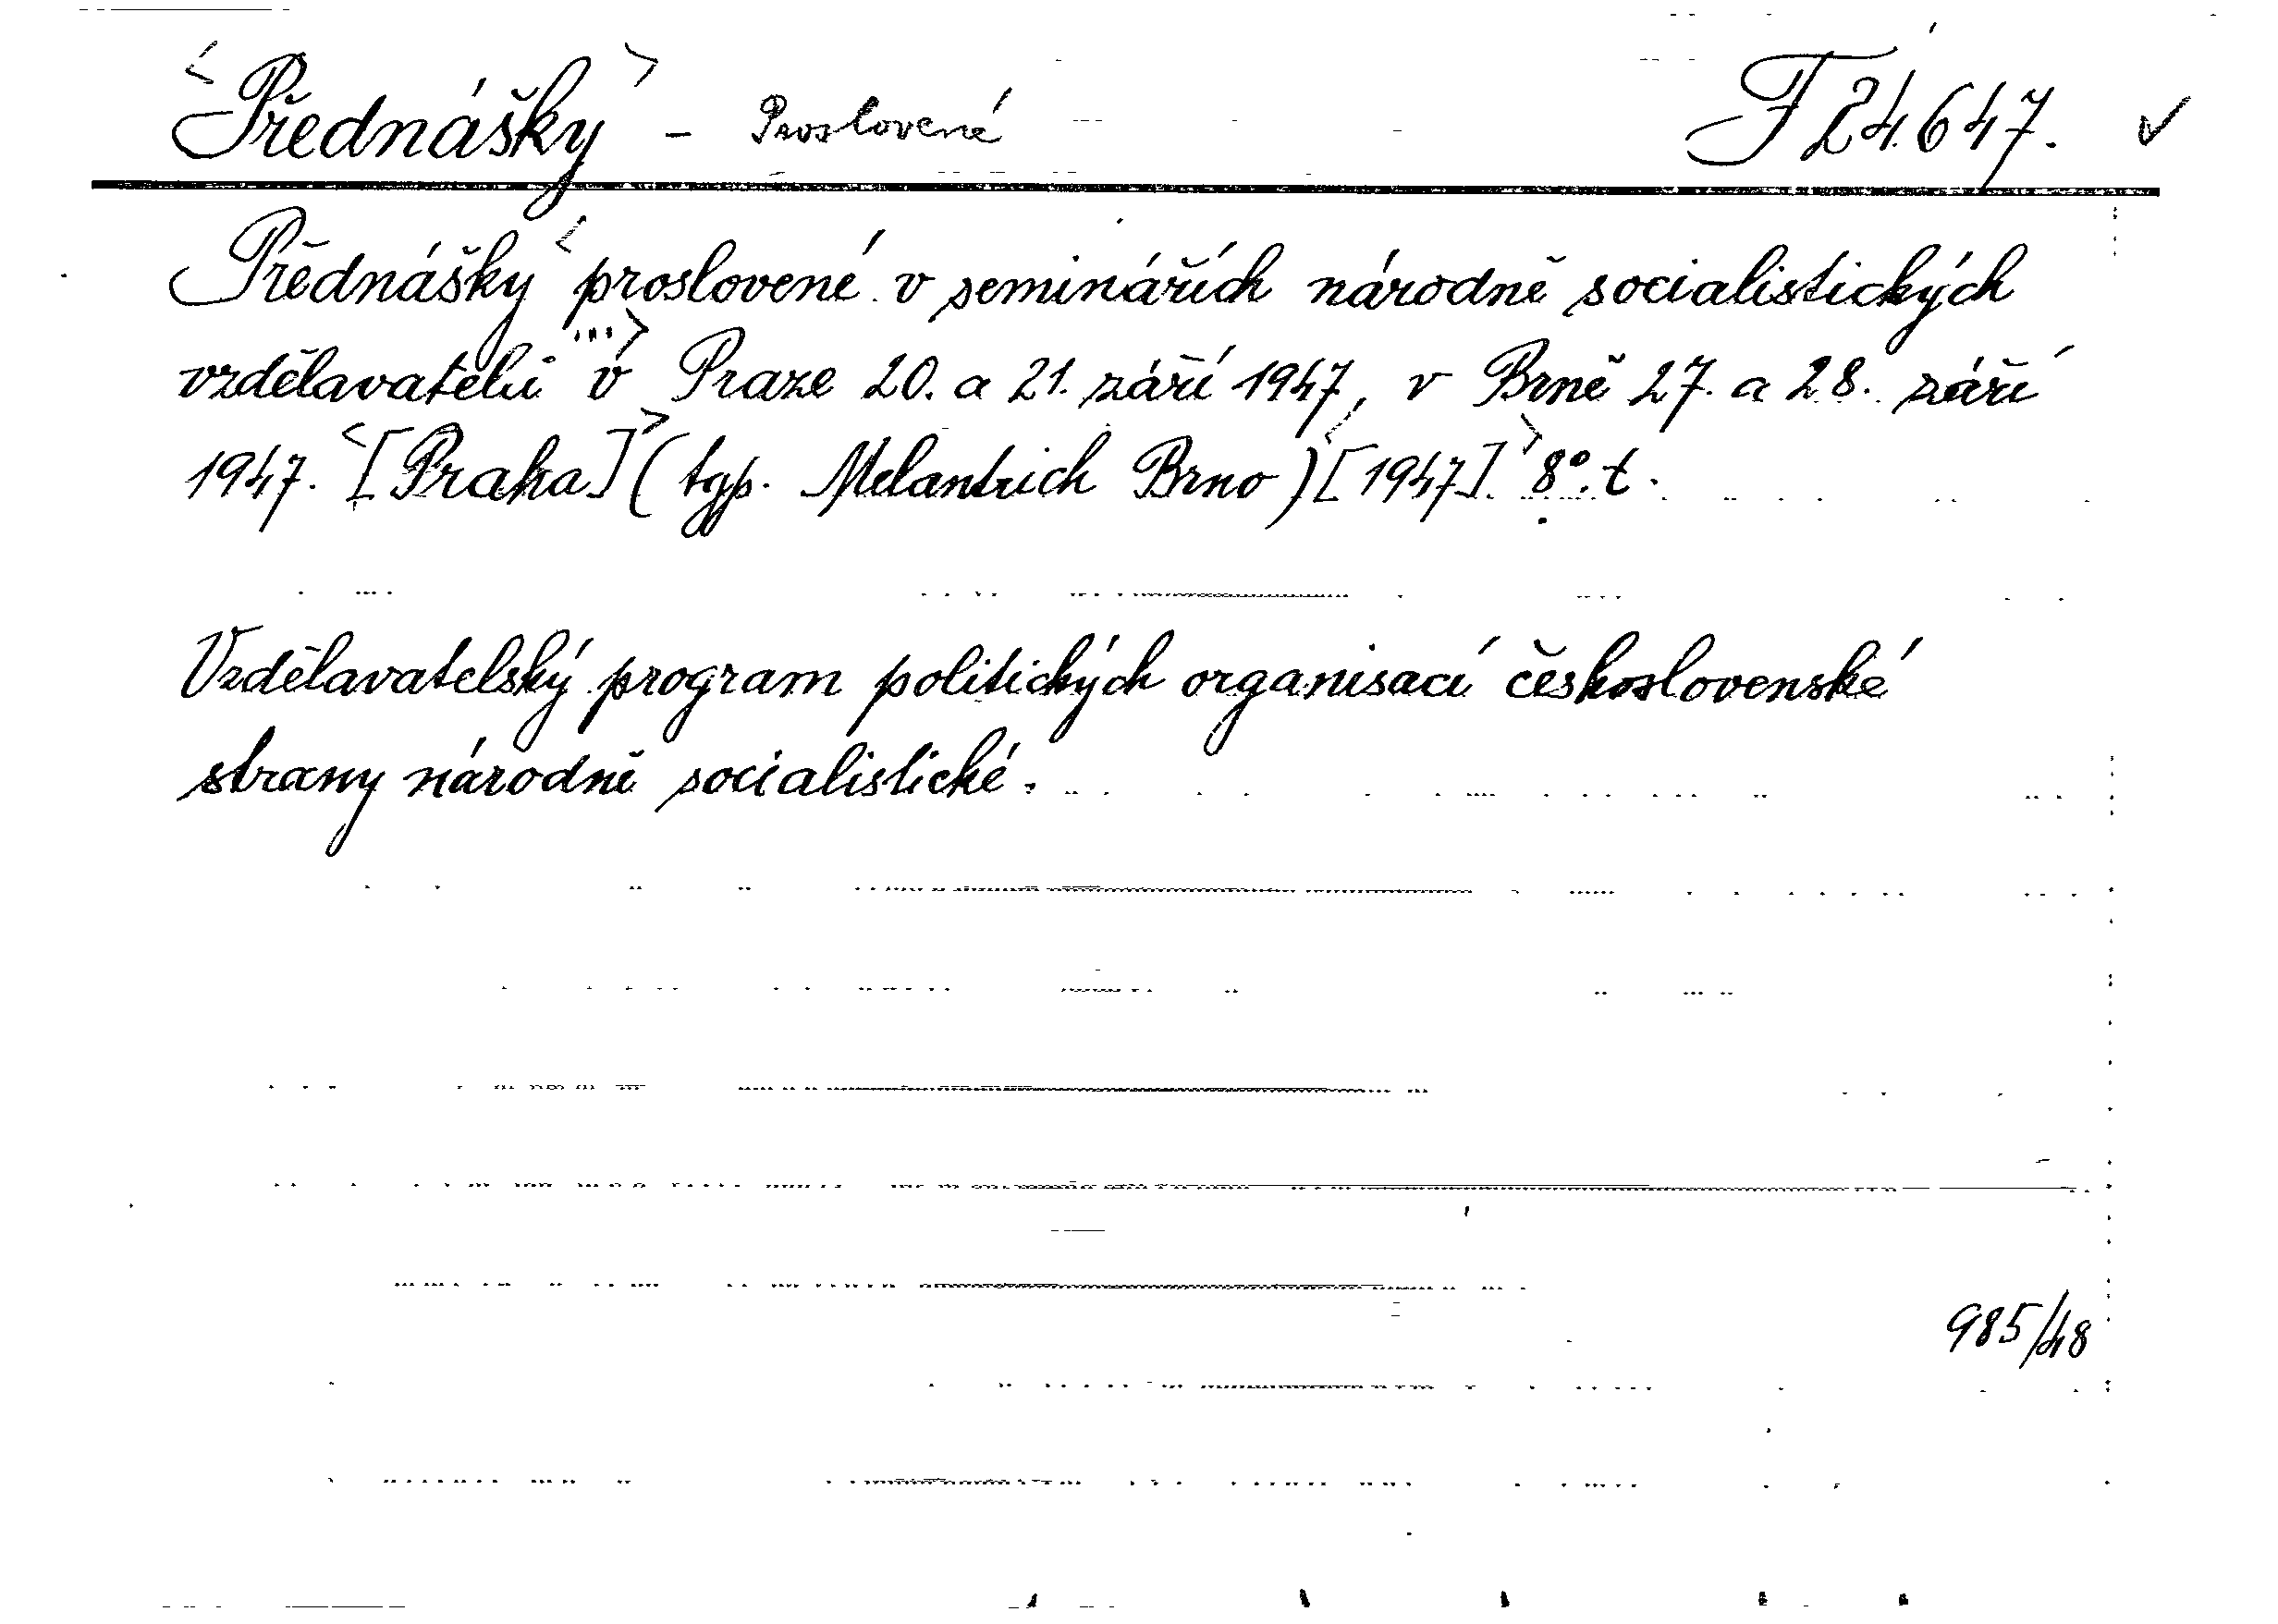 <Přednášky> - Proslovené F 24.647. ✓
Přednášky <proslovené v seminářích národně socialistických
vzdělavatelů ...> v Praze 20. a 21. září 1947, v Brně 27. a 28. září
1947. <[Praha]> (typ. Melantrich Brno) <[1947].> 8°. t.
Vzdělavatelský program politických organisací československé
strany národně socialistické.
985/48